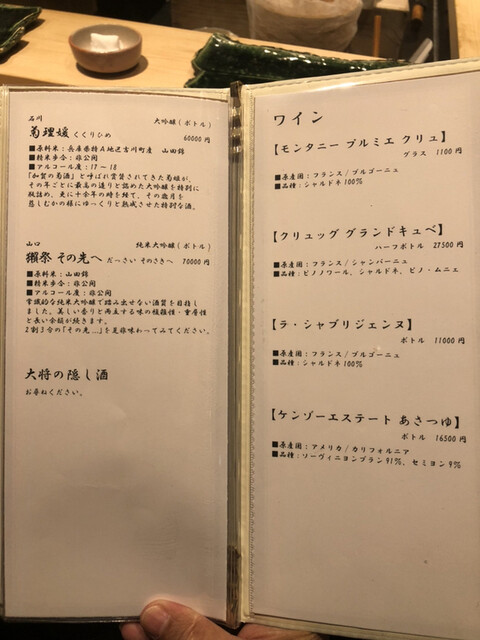 石川 大吟醸(ボトル)
菊理媛 くくりひめ 60000円
■原料米:兵庫県特A地区吉川町産 山田錦
■精米歩合:非公開
■アルコール度:17〜18
「加賀の菊酒」と呼ばれ賞賛されてきた菊姫が、
その年ごとに最高の造りと認めた大吟醸を特別に
瓶詰め、更に十余年の時を経て、その歳月を
慈しむかの様にゆっくりと熟成させた特別な酒。
山口 純米大吟醸(ボトル)
獺祭 その先へ だっさい そのさきへ 70000円
■原料米:山田錦
■精米歩合:非公開
■アルコール度:非公開
常識的な純米大吟醸で踏み出せない酒質を目指し
ました。美しい香りと両立する味の複雑性・重層性
と長い余韻が続きます。
2割3分の「その先...」を是非味わってみてください。
大将の隠し酒
お尋ねください。
ワイン
【モンタニー プルミエ クリュ】
グラス 1100円
■原産国:フランス/ブルゴーニュ
■品種:シャルドネ100%
【クリュッグ グランドキュベ】
ハーフボトル 27500円
■原産国:フランス/シャンパーニュ
■品種:ピノノワール、シャルドネ、ピノ・ムニェ
【ラ・シャブリジェンヌ】
ボトル 11000円
■原産国:フランス/ブルゴーニュ
■品種:シャルドネ100%
【ケンゾーエステート あさつゆ】
ボトル 16500円
■原産国:アメリカ/カリフォルニア
■品種:ソーヴィニヨンブラン91%、セミヨン9%